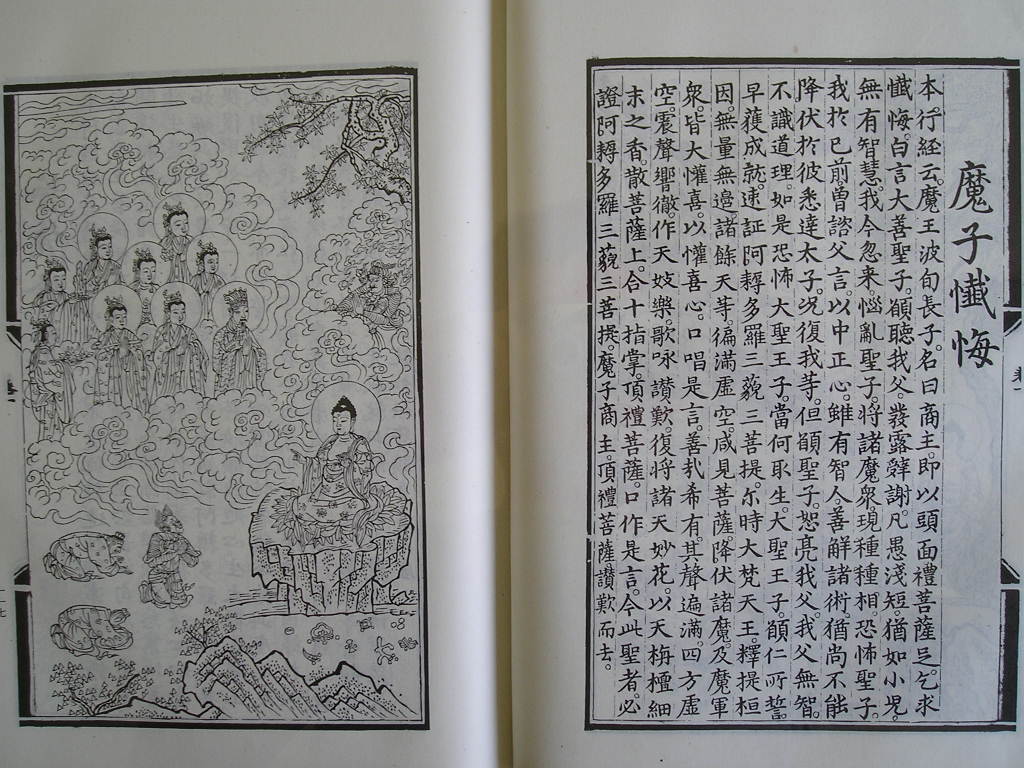 魔子懺悔
本行経云。魔王波旬長子。名曰商主。即以頭面禮菩薩足。乞求
懺悔。白言大善聖子。願聴我父。發露辭謝。凡愚淺短。猶如小児。
無有智慧。我今忽来惱亂聖子。將諸魔衆。現種種相。恐怖聖子。
我扵已前曽諮父言。以中正心。雖有智人。善解諸術。猶尚不能
降伏扵彼悉達太子。况復我等。但願聖子。恕亮我父。我父無智。
不識道理。如是恐怖大聖王子。當何取生。大聖王子。願仁所誓。
早獲成就。速証阿耨多羅三藐三菩提。尔時大梵天王。釋提桓
因。無量無邊。諸餘天等。徧滿虚空。咸見菩薩。降伏諸魔及魔軍
衆。皆大懽喜。以懽喜心。口唱是言。善哉希有。其聲遍滿。四方虚
空。震聲響徹。作天妓樂歌咏讃歎。復將諸天妙花。以天栴檀細
末之香。散菩薩上。合十指掌。頂禮菩薩。口作是言。今此聖者。必
證阿耨多羅三藐三菩提。魔子商主。頂禮菩薩讃歎而去。